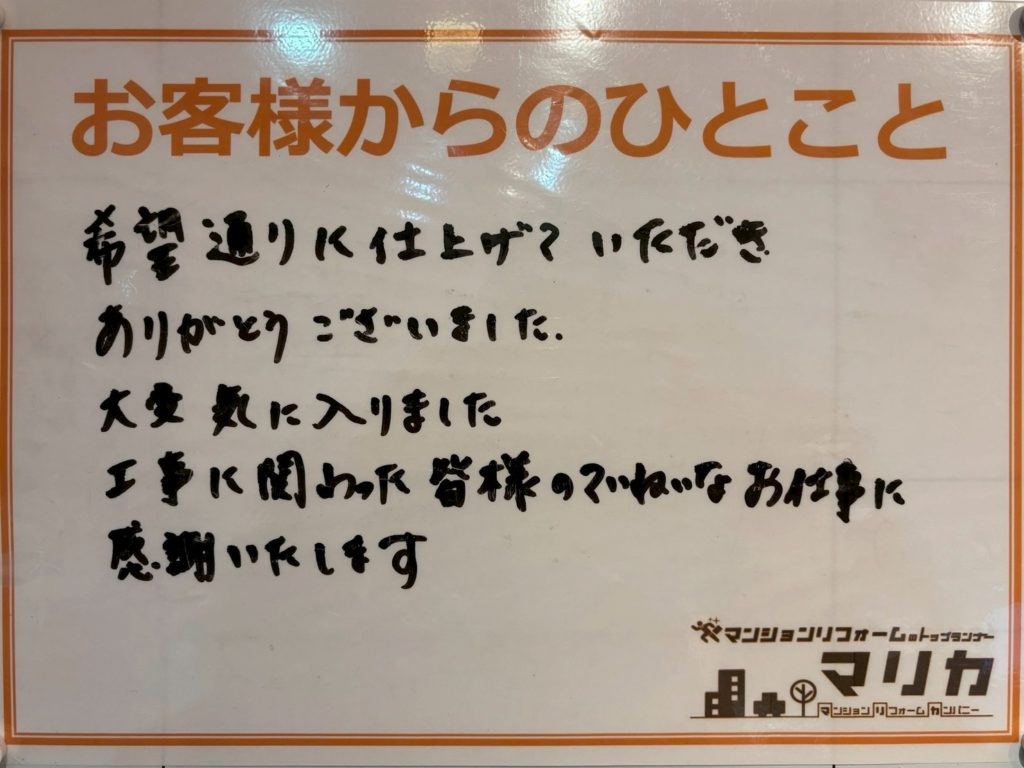 お客様からのひとこと
希望通りに仕上げていただき
ありがとうございました.
大変気に入りました
工事に関わった皆様のていねいなお仕事に
感謝いたします
マンションリフォームのトップランナー
マリカ
マンションリフォームカンパニー